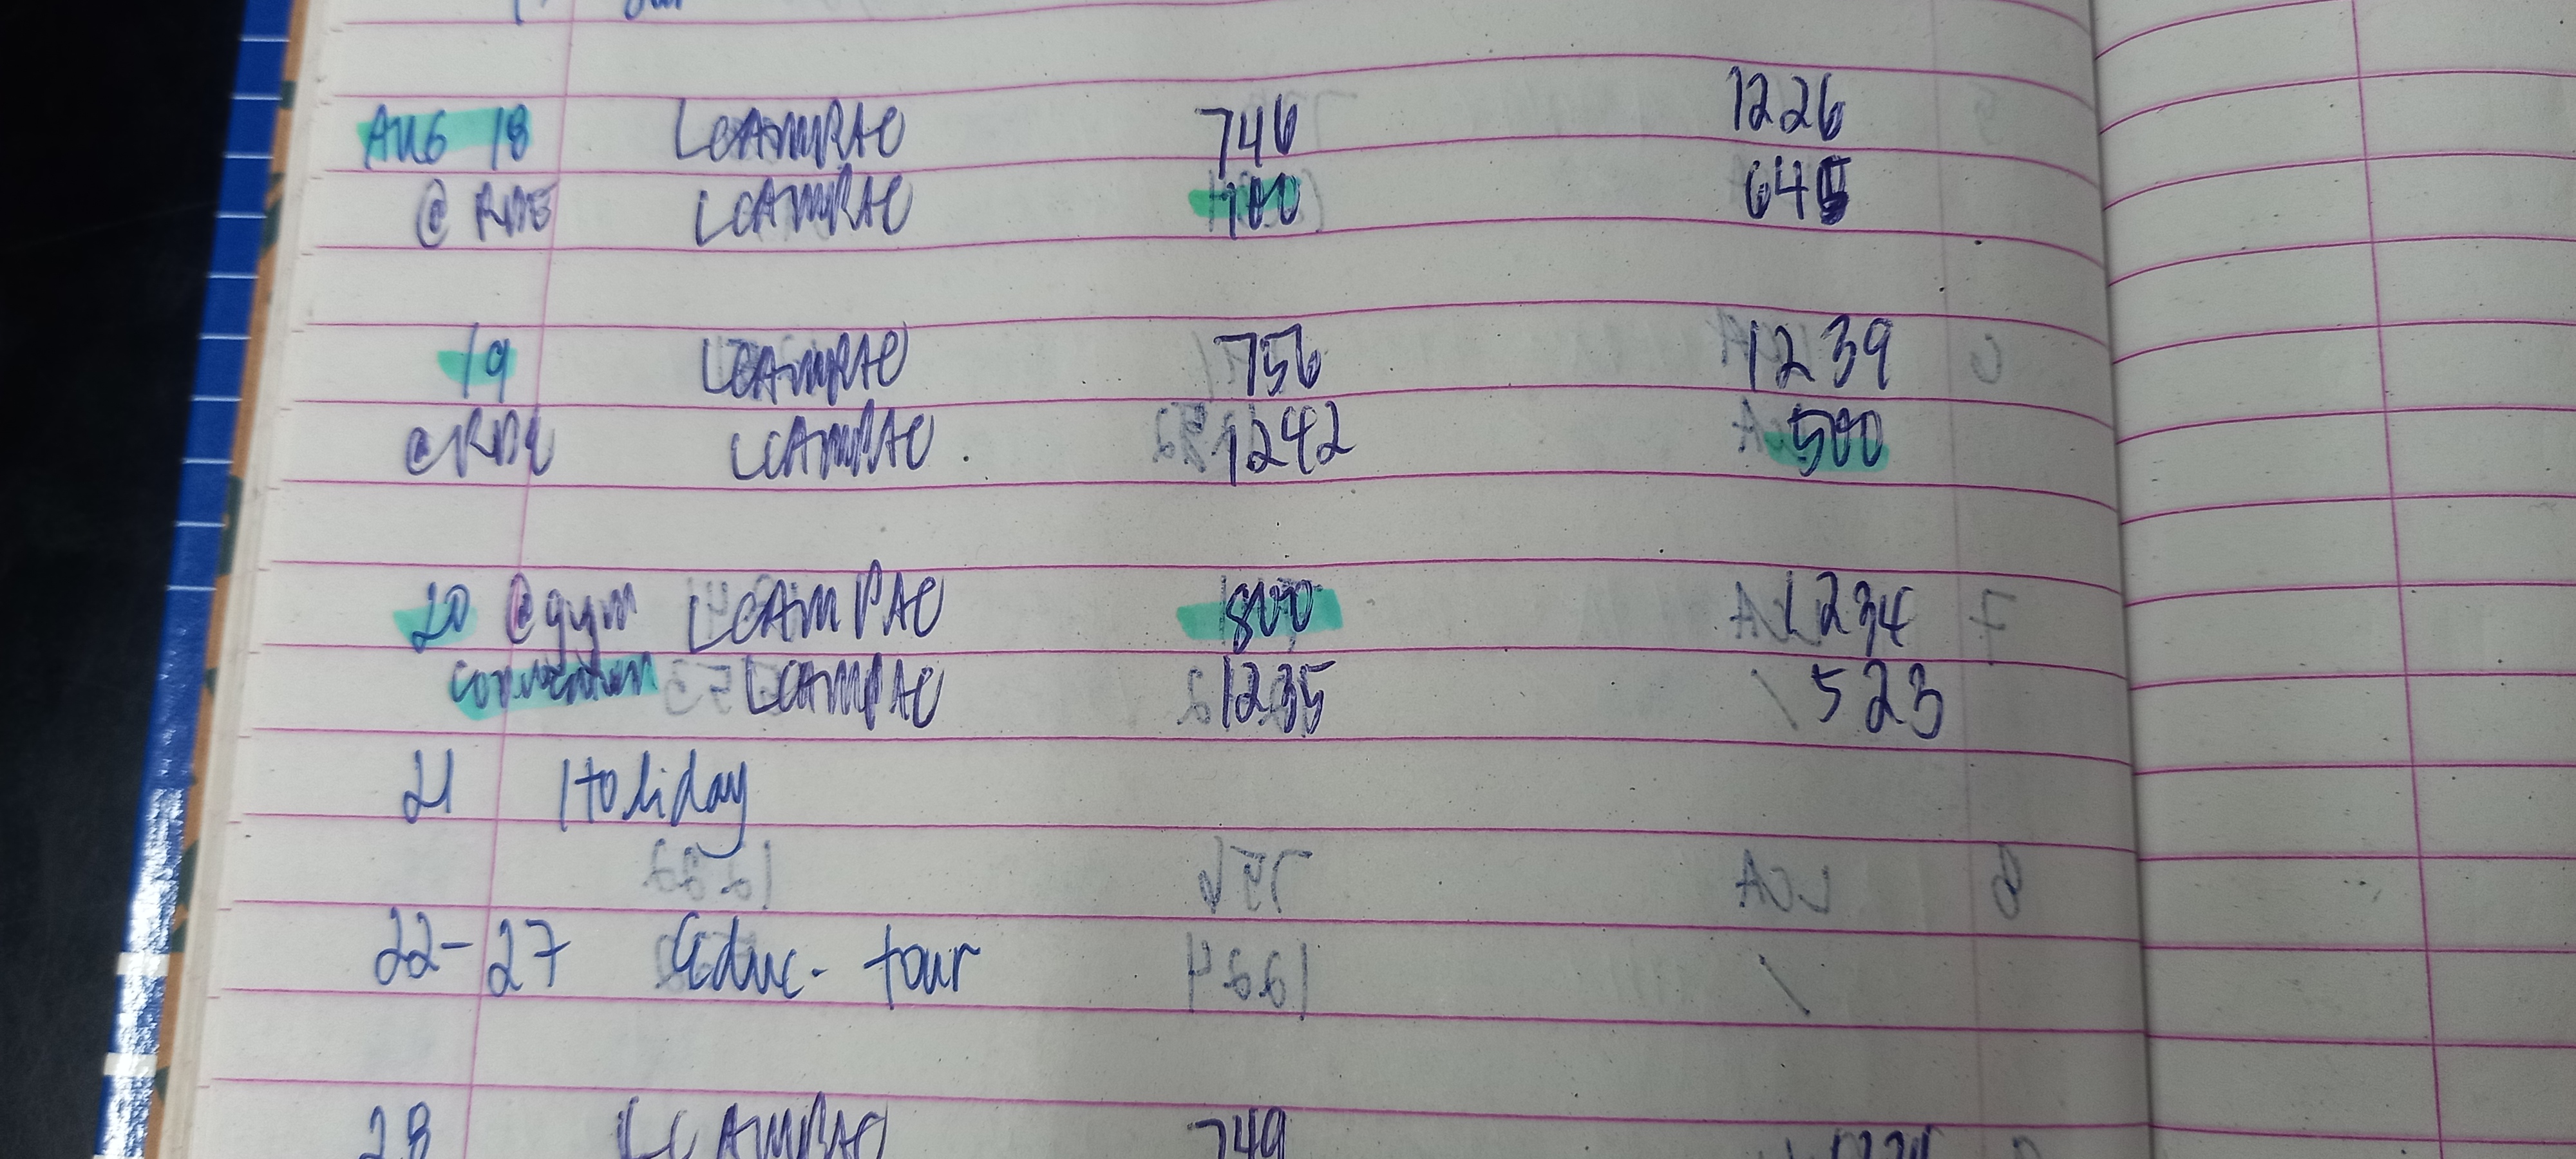 Aug 18 LCAMPAO 746 1226
@ RDE LCAMPAO 100 645
19 LCAMPAO 756 1239
@RDE LCAMPAO 1242 500
20 @gym LCAMPAO 800 1234
convention LCAMPAO 1235 523
21 Holiday
22-27 Educ. tour
28 LCAMPAO 749